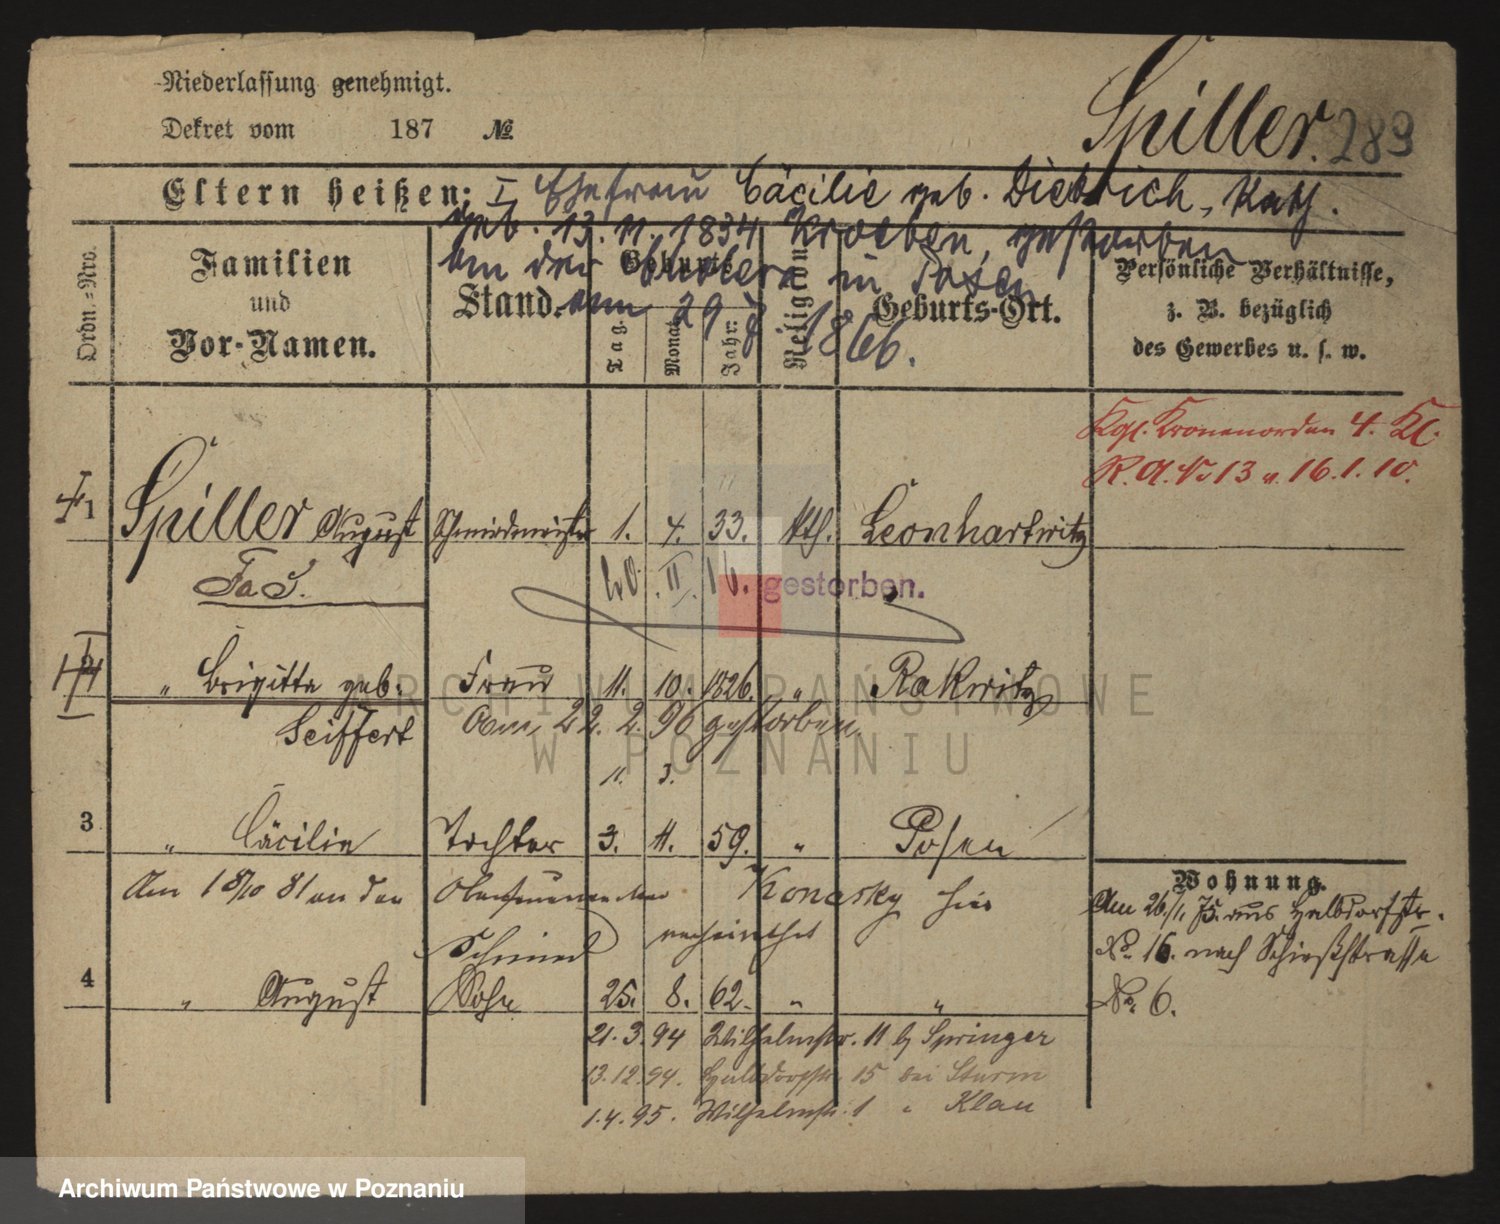 Niederlassung genehmigt.
Dekret vom 187 №
Spiller. 289
Eltern heißen: I Ehefrau Cäcilie geb. Dietrich, Kath.
geb. 13. 11. 1834 Kroeben, gestorben
an der Cholera in Posen
am 29 8 1866.
Ordn.-Nro.
Familien
und
Vor-Namen.
Stand.
Geburts
Tag.
Monat
Jahr:
Religion
Geburts-Ort.
Persönliche Verhältnisse,
z. B. bezüglich
des Gewerbes u. s. w.
Kgl. Kronenorden 4. Kl.
R. A. No 13 v. 16. 1. 10.
I
1 Spiller August Schmiedemeister 1. 4. 33. kth. Leonhartwitz
20. II. 16. gestorben.
II
" Brigitte geb. Frau 11. 10. 1826. " Rakwitz
Seiffert Am 22. 2. 96 gestorben.
11. 3.
3 " Cäcilie Tochter 3. 11. 59. " Posen
Am 18/10 81 an den Konasky hier
verheirathet
Schmied
4 " August Sohn 25. 8. 62. " "
21. 3. 94 Wilhelmstr. 11 b/ Springer
13. 12. 94. Halbdorfstr. 15 bei Sturm
1. 4. 95. Wilhelmstr. 1 " Klau
Wohnung.
Am 26/1. 75. aus Halbdorfstr.
No. 16. nach Schießstrasse
No. 6.
ARCHIWUM PAŃSTWOWE
W POZNANIU
Archiwum Państwowe w Poznaniu